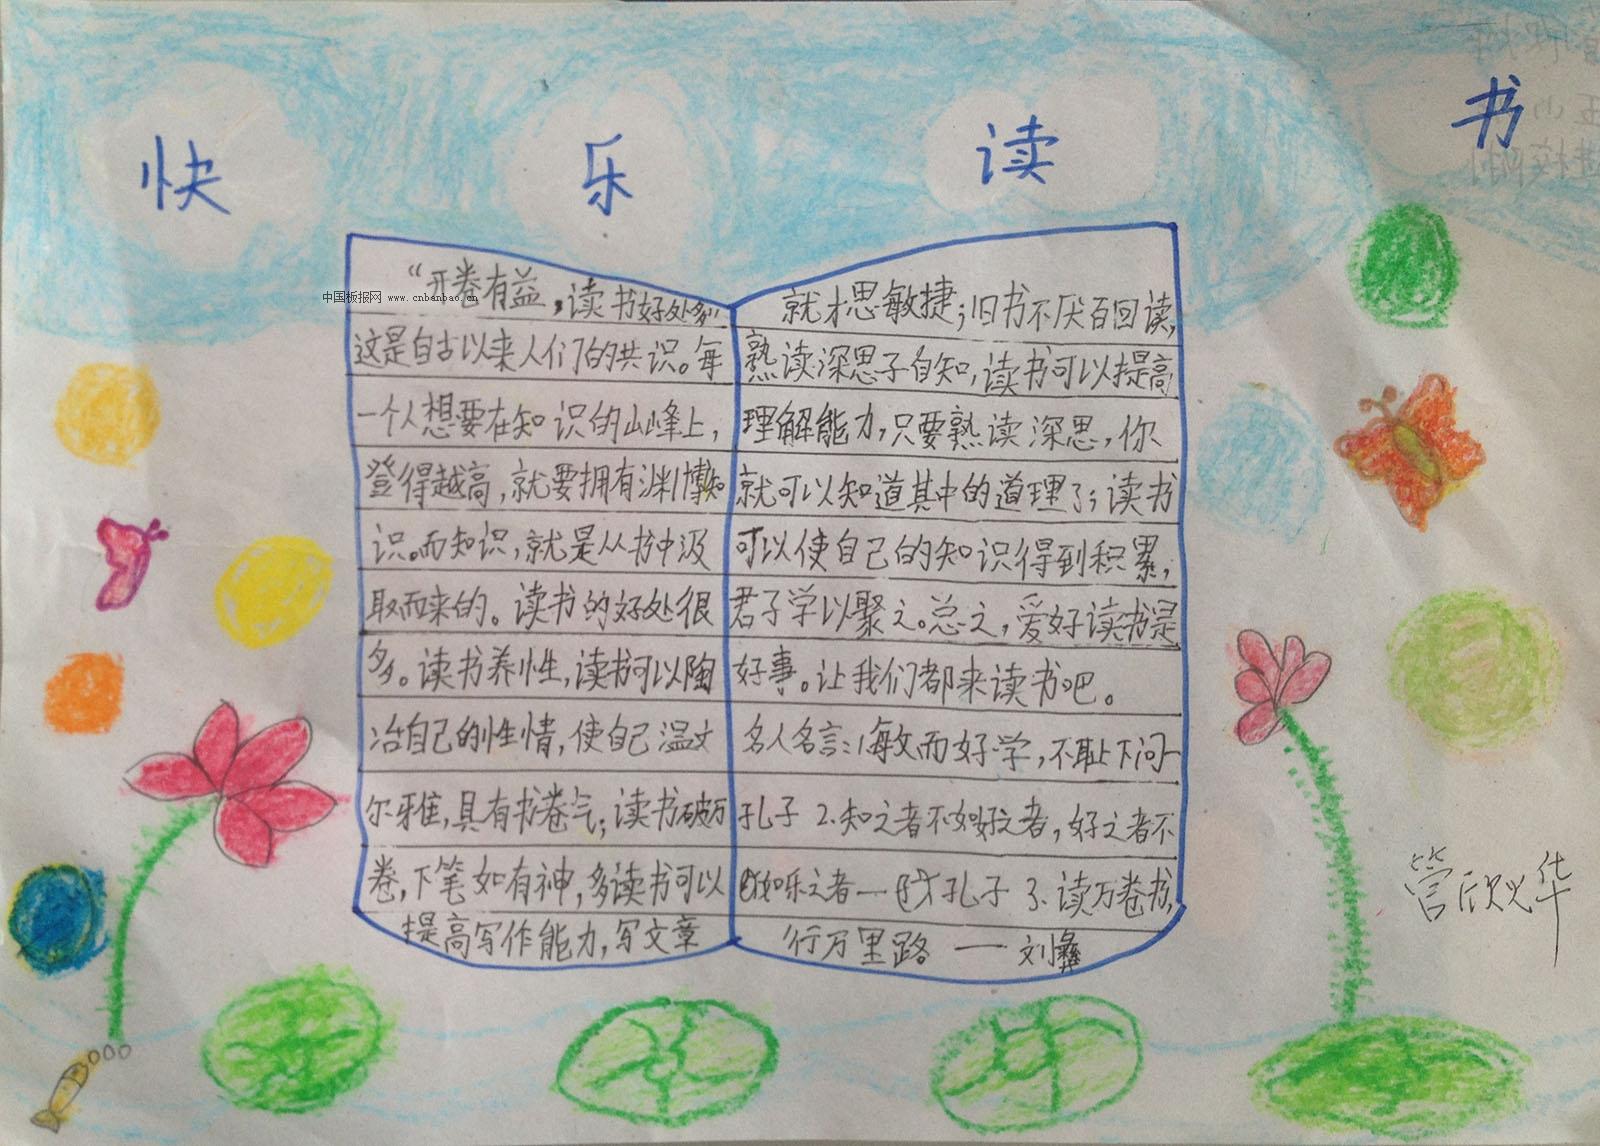 快 乐 读 书
中国板报网 www.cnbanbao.cn
“开卷有益，读书好处多”
这是自古以来人们的共识。每
一个人想要在知识的山峰上，
登得越高，就要拥有渊博知
识。而知识，就是从书中汲
取而来的。读书的好处很
多。读书养性，读书可以陶
冶自己的性情，使自己温文
尔雅，具有书卷气；读书破万
卷，下笔如有神，多读书可以
提高写作能力，写文章
就才思敏捷；旧书不厌百回读，
熟读深思子自知，读书可以提高
理解能力，只要熟读深思，你
就可以知道其中的道理了；读书
可以使自己的知识得到积累，
君子学以聚之。总之，爱好读书是
好事。让我们都来读书吧。
名人名言：1敏而好学，不耻下问一
孔子 2.知之者不如好之者，好之者不
如乐之者一 孔子 3、读万卷书，
行万里路。一 刘彝
管欣烨